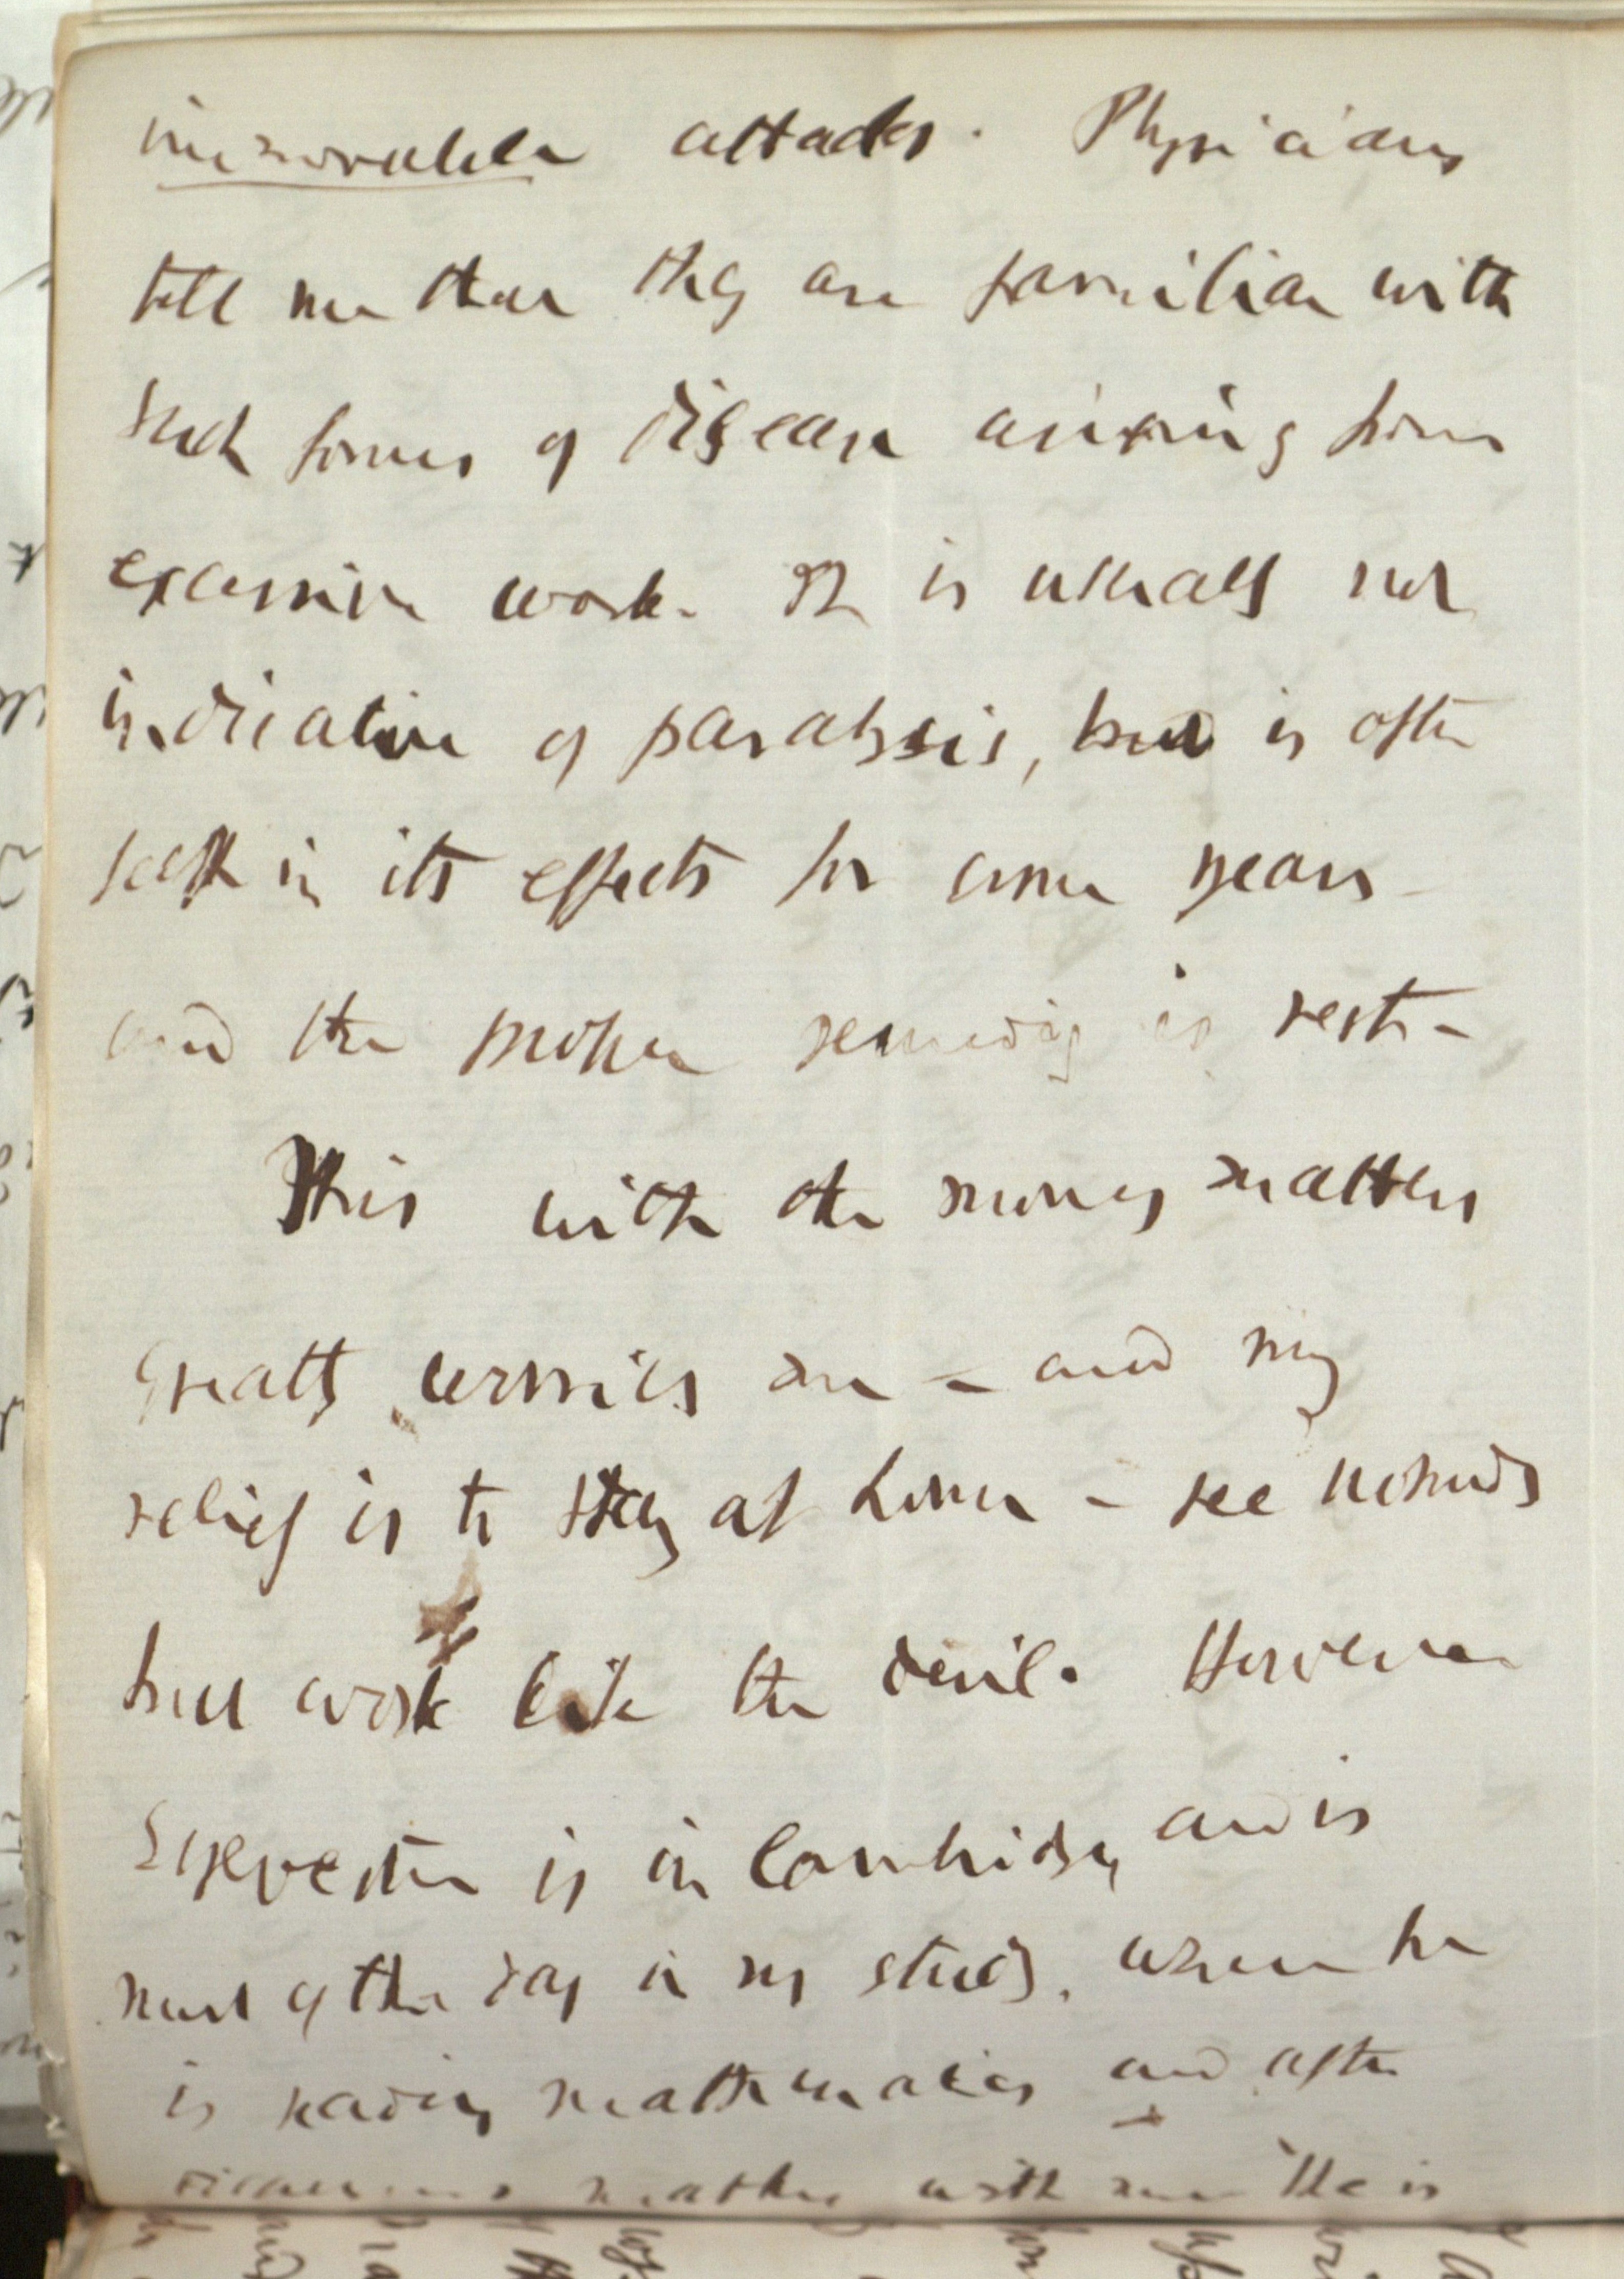 innumerable attacks. Physicians
tell me that they are familiar with
such forms of disease arising from
excessive work. It is usually not
indicative of paralysis, but is often
felt in its effects for some years
and the proper remedy is rest -
This with the money matters
greatly worries me - and my
relief is to stay at home - see nobody
but work like the devil. However
Sylvester is in Cambridge, and is
most of the day in my study, where he
is reading mathematics and often
matters with me He is